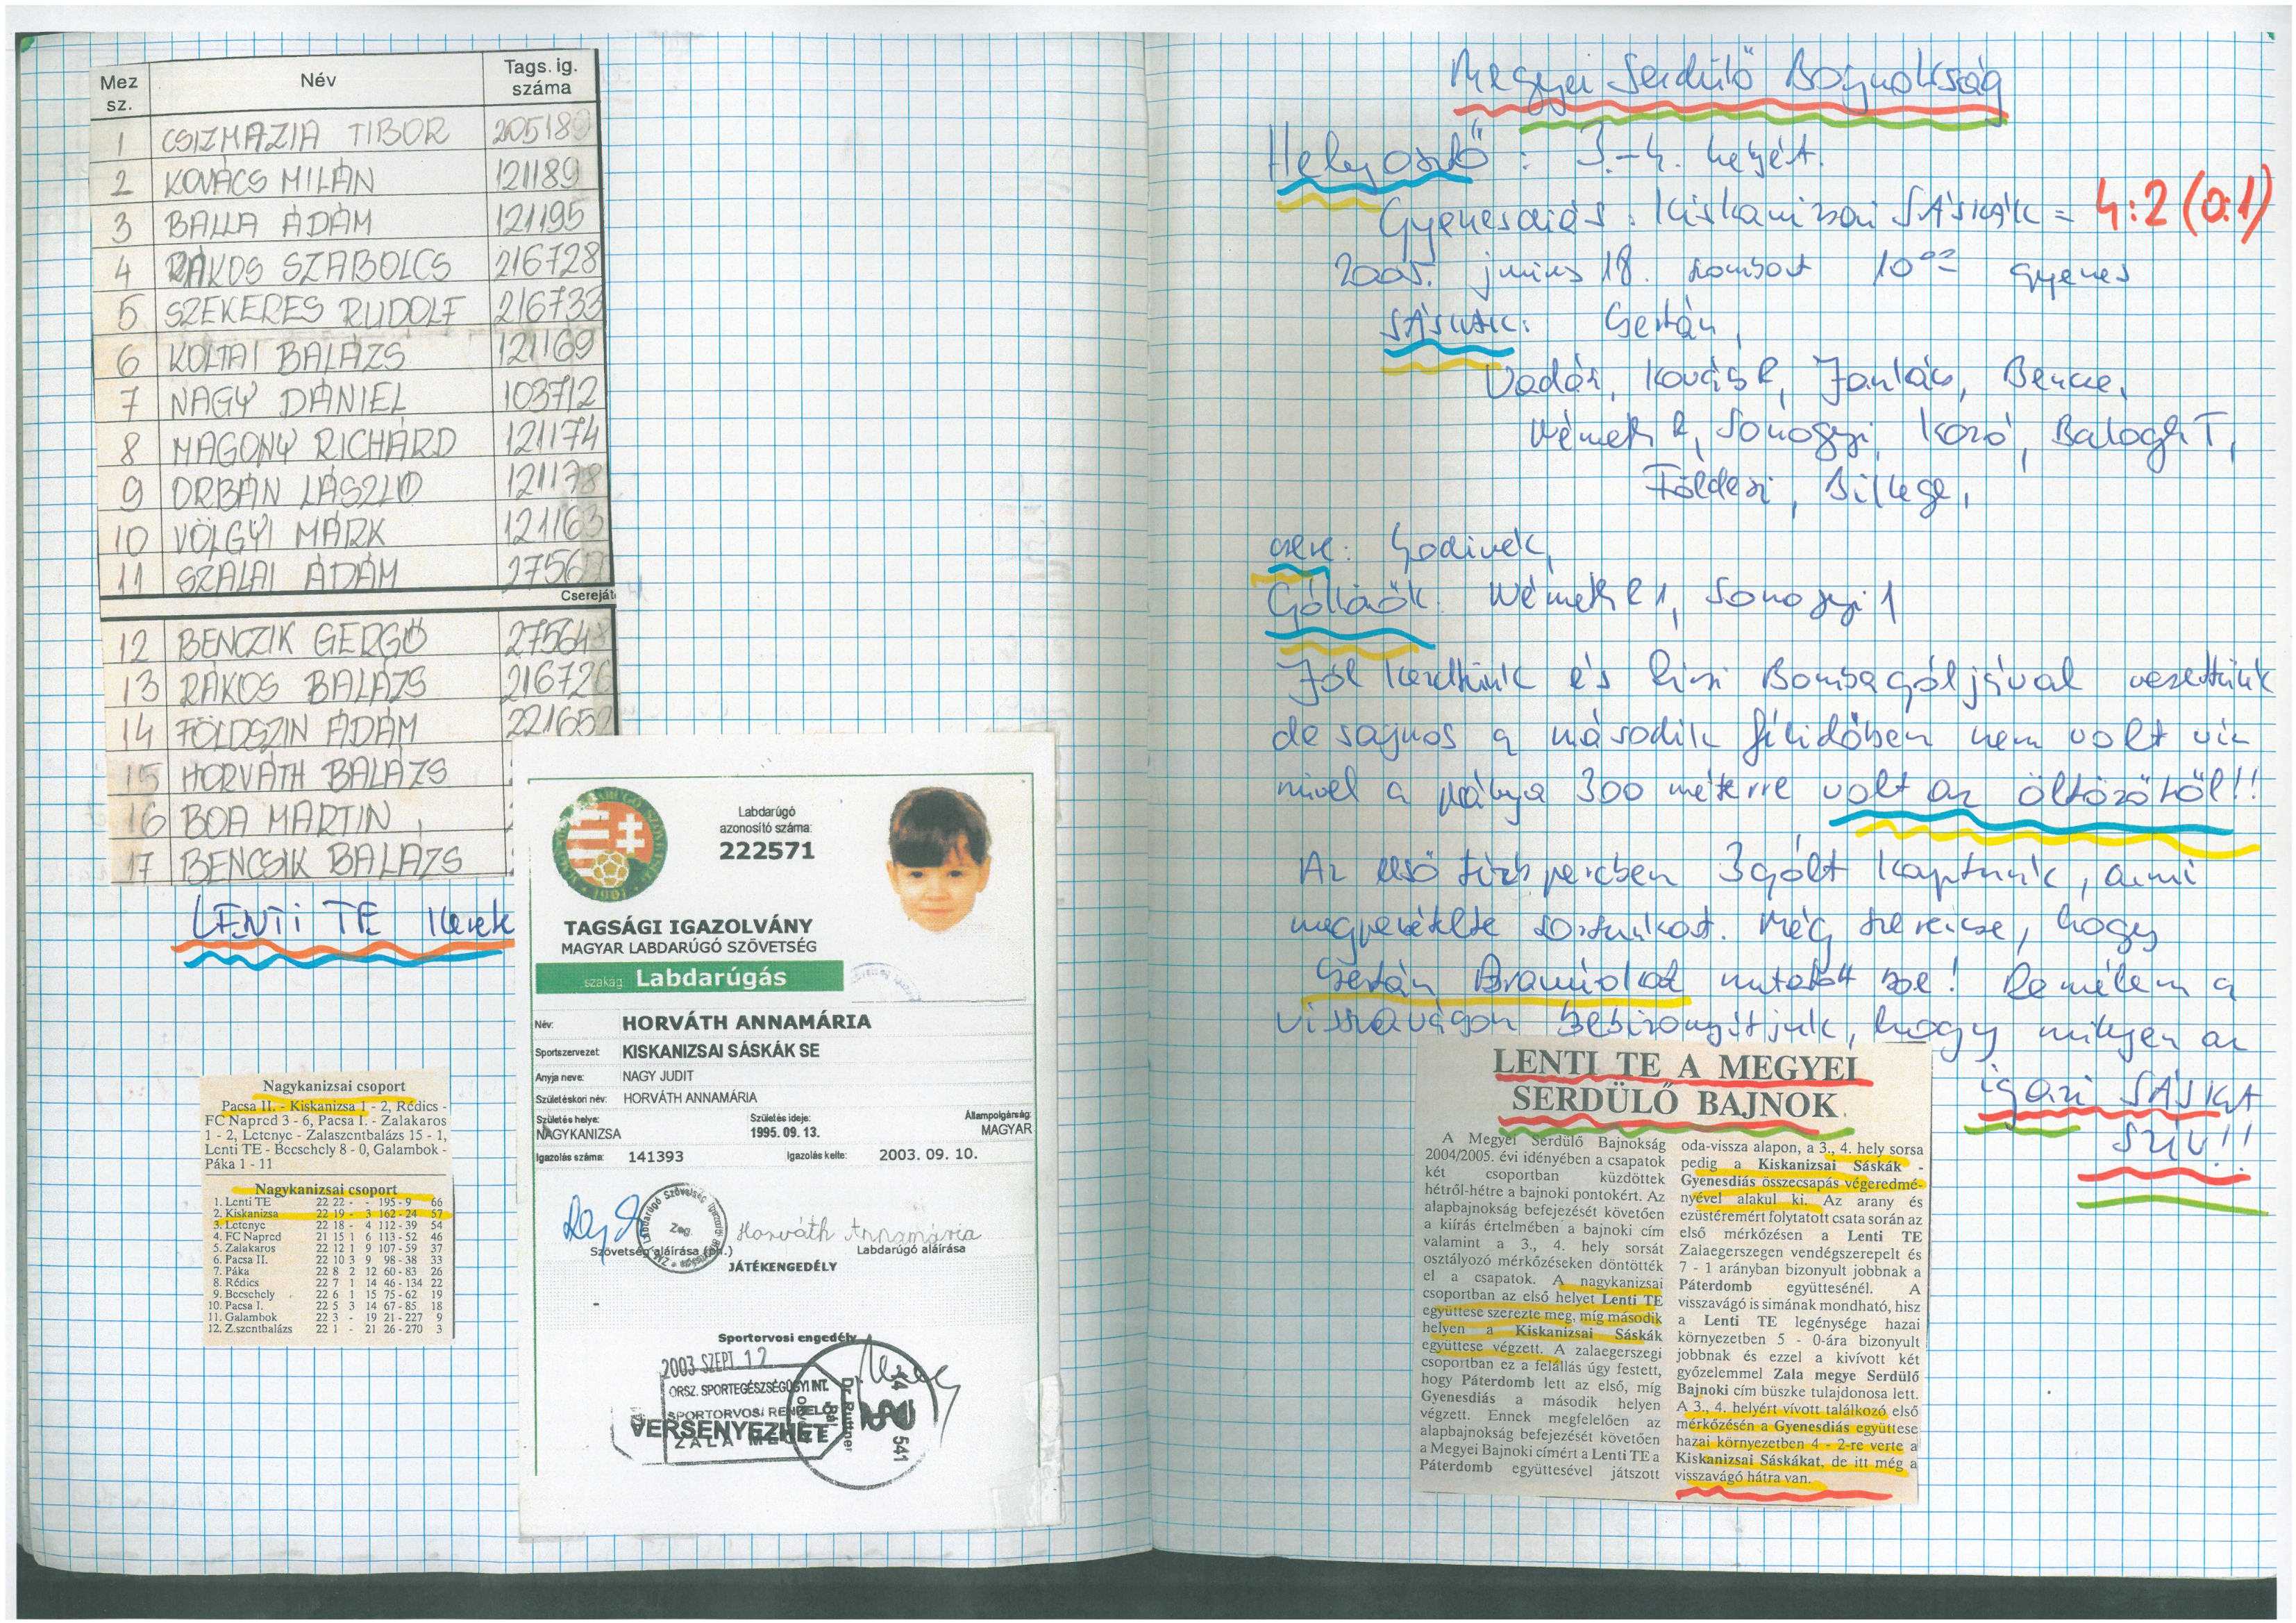 Mez sz. Név Tags. ig. száma
1 CSIZMAZIA TIBOR 205180
2 KOVÁCS MILÁN 121189
3 BALLA ÁDÁM 121195
4 RÁKOS SZABOLCS 216728
5 SZEKERES RUDOLF 216733
6 KOLTAI BALÁZS 121169
7 NAGY DÁNIEL 103712
8 MAGONY RICHÁRD 121174
9 ORBÁN LÁSZLÓ 121178
10 VÖLGYI MÁRK 121163
11 SZALAI ÁDÁM 27567
Cserejáté
12 BENCZIK GERGŐ 27564
13 RÁKOS BALÁZS 216726
14 FÖLDSZIN ÁDÁM 221652
15 HORVÁTH BALÁZS
16 BOA MARTIN
17 BENCSIK BALÁZS
LENTI TE Keret
Nagykanizsai csoport
Pacsa II. - Kiskanizsa 1 - 2, Rédics -
FC Napred 3 - 6, Pacsa I. - Zalakaros
1 - 2, Letenye - Zalaszentbalázs 15 - 1,
Lenti TE - Becsehely 8 - 0, Galambok -
Páka 1 - 11
Nagykanizsai csoport
1. Lenti TE 22 22 - - 195 - 9 66
2. Kiskanizsa 22 19 - 3 162 - 24 57
3. Letenye 22 18 - 4 112 - 39 54
4. FC Napred 21 15 1 6 113 - 52 46
5. Zalakaros 22 12 1 9 107 - 59 37
6. Pacsa II. 22 10 3 9 98 - 38 33
7. Páka 22 8 2 12 60 - 83 26
8. Rédics 22 7 1 14 46 - 134 22
9. Becsehely 22 6 1 15 75 - 62 19
10. Pacsa I. 22 5 3 14 67 - 85 18
11. Galambok 22 3 - 19 21 - 227 9
12. Z.szentbalázs 22 1 - 21 26 - 270 3
Labdarúgó
azonosító száma:
222571
TAGSÁGI IGAZOLVÁNY
MAGYAR LABDARÚGÓ SZÖVETSÉG
szakág Labdarúgás
Név: HORVÁTH ANNAMÁRIA
Sportszervezet: KISKANIZSAI SÁSKÁK SE
Anyja neve: NAGY JUDIT
Születéskori név: HORVÁTH ANNAMÁRIA
Születés helye: Születés ideje: Állampolgárság:
NAGYKANIZSA 1995. 09. 13. MAGYAR
Igazolás száma: 141393 Igazolás kelte: 2003. 09. 10.
Horváth Annamária
Szövetség aláírása (ph.) Labdarúgó aláírása
JÁTÉKENGEDÉLY
Sportorvosi engedély
2003 SZEPT. 12
ORSZ. SPORTEGÉSZSÉGÜGYI INT.
SPORTORVOSI RENDELŐ
VERSENYEZHET
ZALA MEGYE
Dr. Ruttner Pál
orvos
541
Megyei Serdülő Bajnokság
Helyosztó: 3.-4. helyért.
Gyenesdiás : Kiskanizsai SÁSKÁK = 4:2 (0:1)
2005. június 18. szombat 10°° Gyenes
SÁSKÁK: Gertán,
Vadár, Kovács R, Jankács, Bencze,
Németh R, Somogyi, Kozó, Balogh T,
Földesi, Billege,
csere: Godinek,
Góllövők: Németh R 1, Somogyi 1
Jól kezdtünk és Ricsi Bombagóljával vezettünk
de sajnos a második félidőben nem volt víz
mivel a pálya 300 méterre volt az öltözőtől!!
Az első tíz percben 3 gólt kaptunk, ami
megpecsételte sorsunkat. Még szerencse, hogy
Gertán Bravúrokat mutatott be! Remélem a
visszavágón bebizonyítjuk, hogy milyen az
igazi SÁSKA
SZÍV!!
LENTI TE A MEGYEI
SERDÜLŐ BAJNOK
A Megyei Serdülő Bajnokság
2004/2005. évi idényében a csapatok
két csoportban küzdöttek
hétről-hétre a bajnoki pontokért. Az
alapbajnokság befejezését követően
a kiírás értelmében a bajnoki cím
valamint a 3., 4. hely sorsát
osztályozó mérkőzéseken döntötték
el a csapatok. A nagykanizsai
csoportban az első helyet Lenti TE
együttese szerezte meg, míg második
helyen a Kiskanizsai Sáskák
együttese végzett. A zalaegerszegi
csoportban ez a felállás úgy festett,
hogy Páterdomb lett az első, míg
Gyenesdiás a második helyen
végzett. Ennek megfelelően az
alapbajnokság befejezését követően
a Megyei Bajnoki címért a Lenti TE a
Páterdomb együttesével játszott
oda-vissza alapon, a 3., 4. hely sorsa
pedig a Kiskanizsai Sáskák -
Gyenesdiás összecsapás végeredmé-
nyével alakul ki. Az arany és
ezüstéremért folytatott csata során az
első mérkőzésen a Lenti TE
Zalaegerszegen vendégszerepelt és
7 - 1 arányban bizonyult jobbnak a
Páterdomb együttesénél. A
visszavágó is simának mondható, hisz
a Lenti TE legénysége hazai
környezetben 5 - 0-ára bizonyult
jobbnak és ezzel a kivívott két
győzelemmel Zala megye Serdülő
Bajnoki cím büszke tulajdonosa lett.
A 3., 4. helyért vívott találkozó első
mérkőzésén a Gyenesdiás együttese
hazai környezetben 4 - 2-re verte a
Kiskanizsai Sáskákat, de itt még a
visszavágó hátra van.